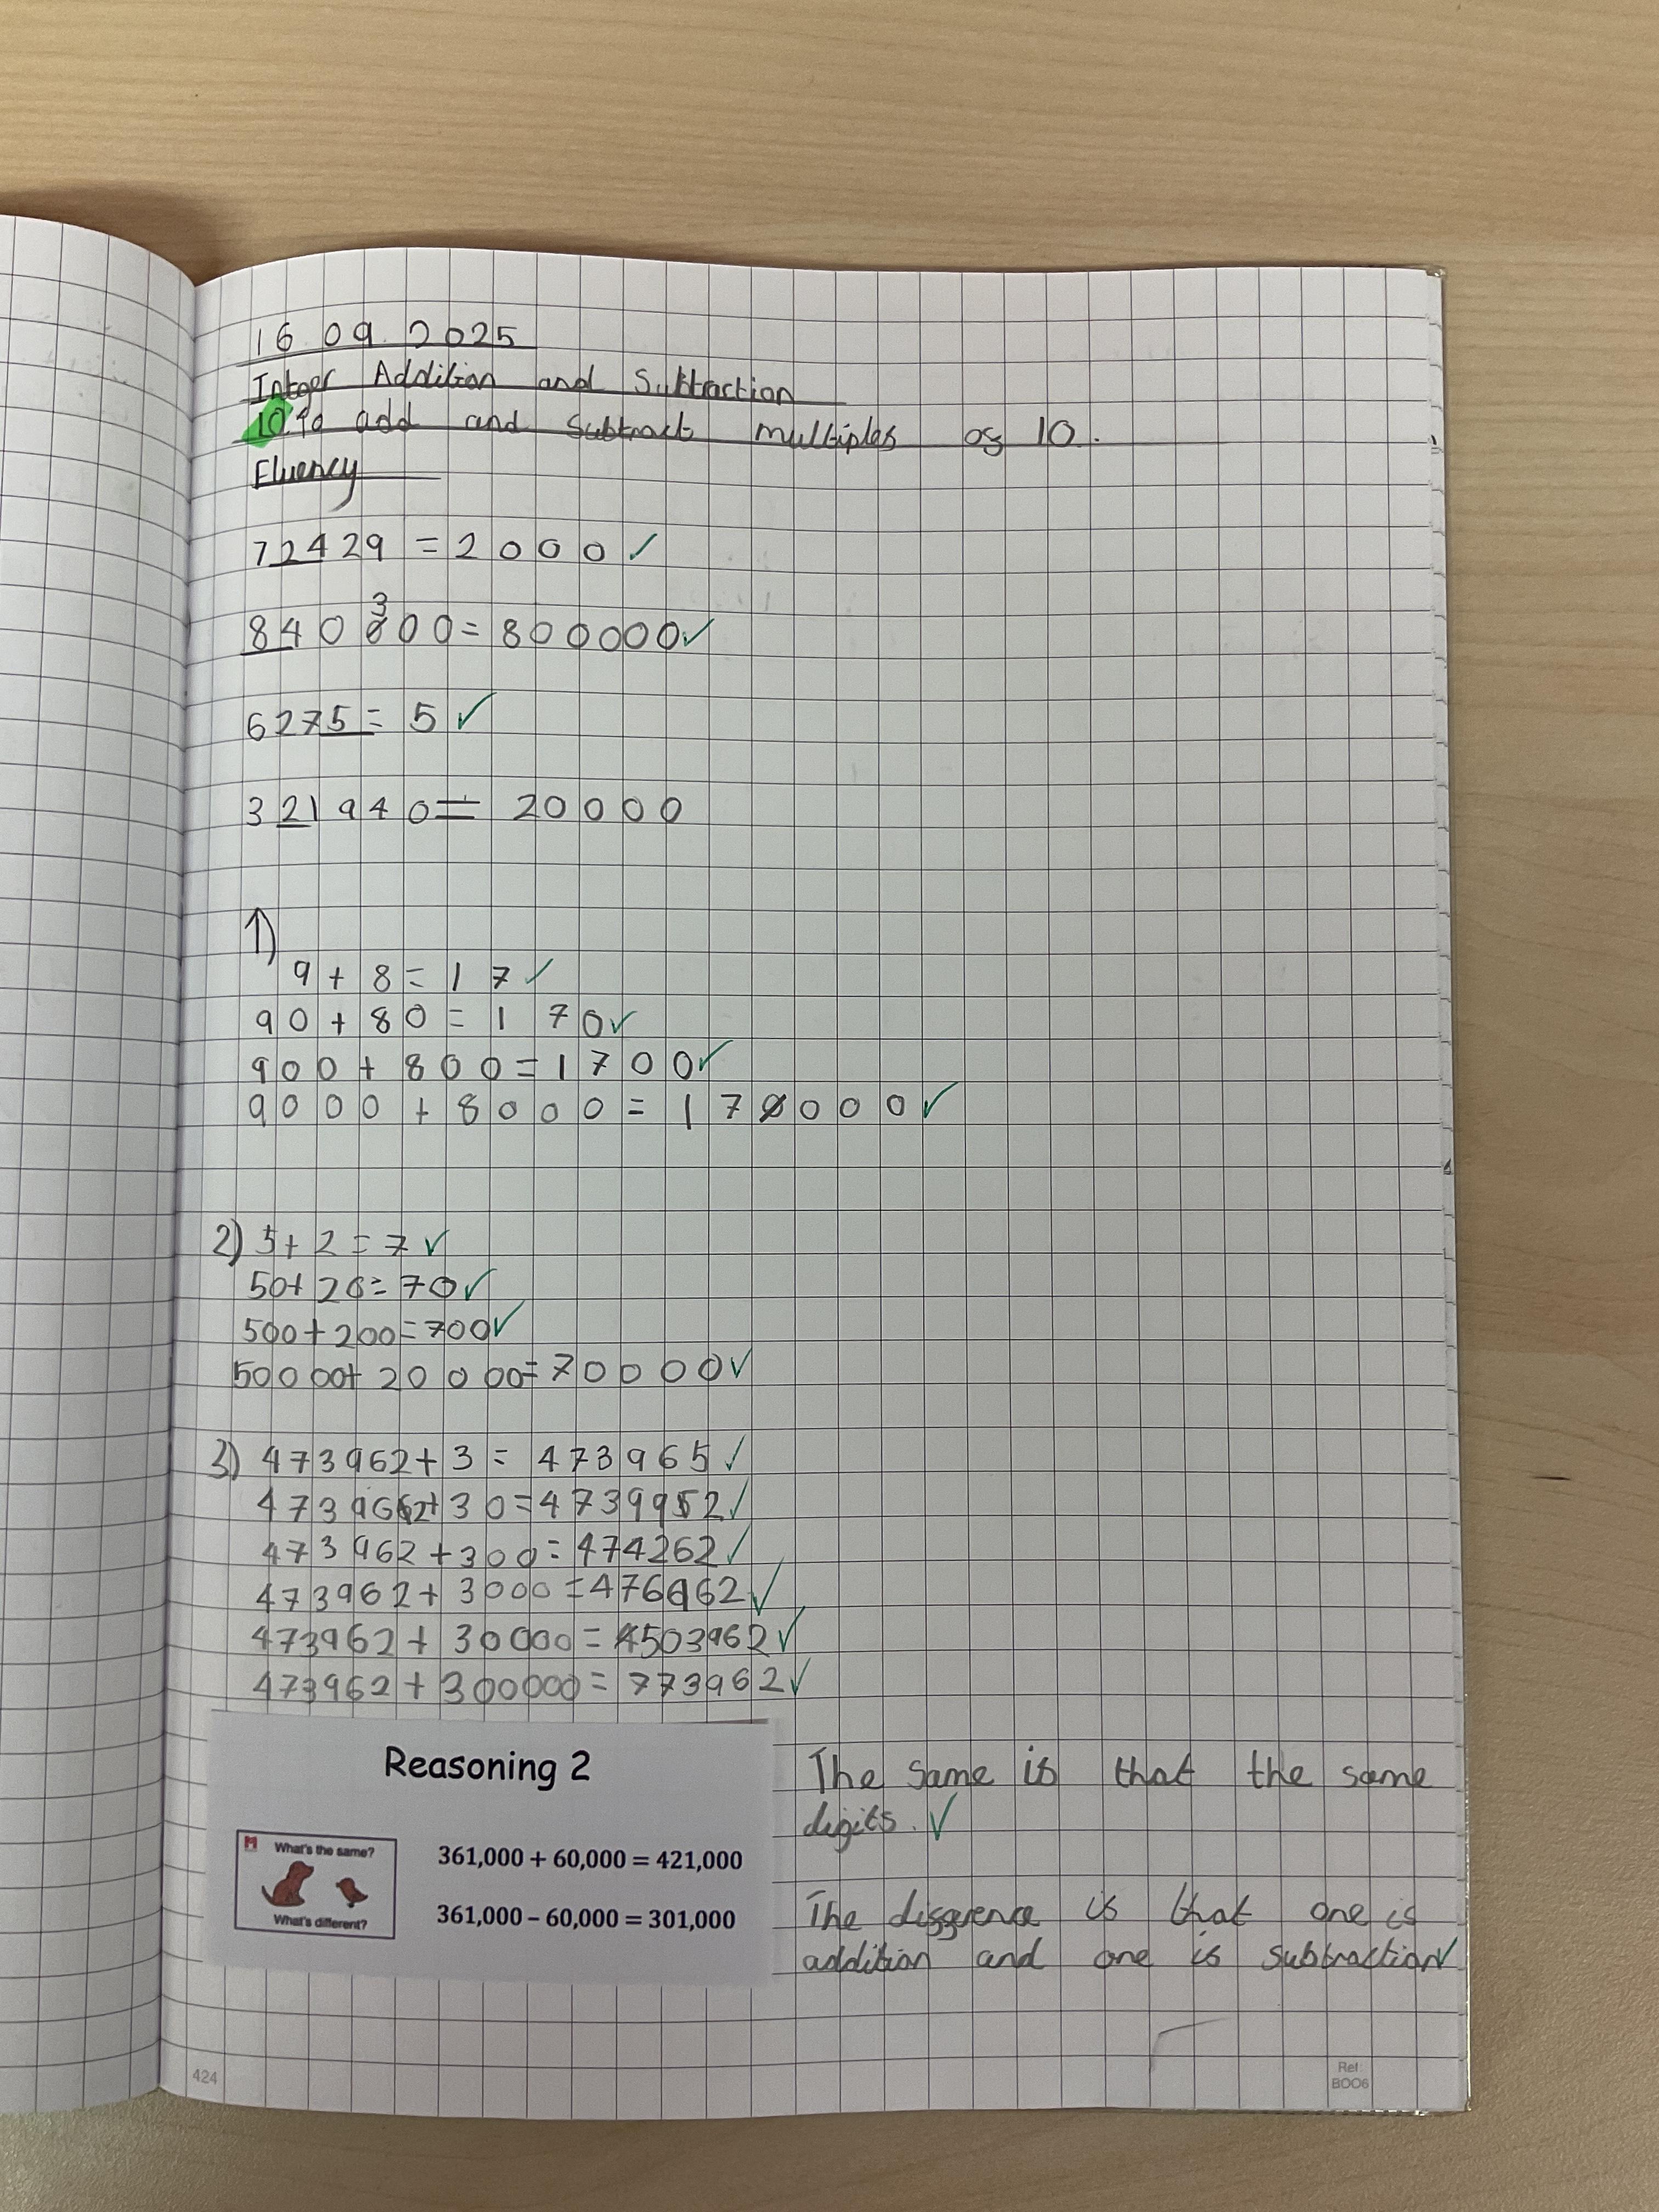 16 09 2025
Integer Addition and Subtraction
LO: To add and subtract multiples of 10.
Fluency
72429 = 2000 ✓
3
840000 = 800000 ✓
6275 = 5 ✓
321940 = 20000
1)
9 + 8 = 17 ✓
90 + 80 = 170 ✓
900 + 800 = 1700 ✓
9000 + 8000 = 170000 ✓
2) 5 + 2 = 7 ✓
50 + 20 = 70 ✓
500 + 200 = 700 ✓
50000 + 20000 = 70000 ✓
3) 473962 + 3 = 473965 ✓
473962 + 30 = 4739952 ✓
473962 + 300 = 474262 ✓
473962 + 3000 = 476962 ✓
473962 + 30000 = 4503962 ✓
473962 + 300000 = 773962 ✓
Reasoning 2
What's the same?
What's different?
361,000 + 60,000 = 421,000
361,000 – 60,000 = 301,000
The same is that the same
digits. ✓
The difference is that one is
addition and one is subtraction ✓
424
Ref:
BOO6